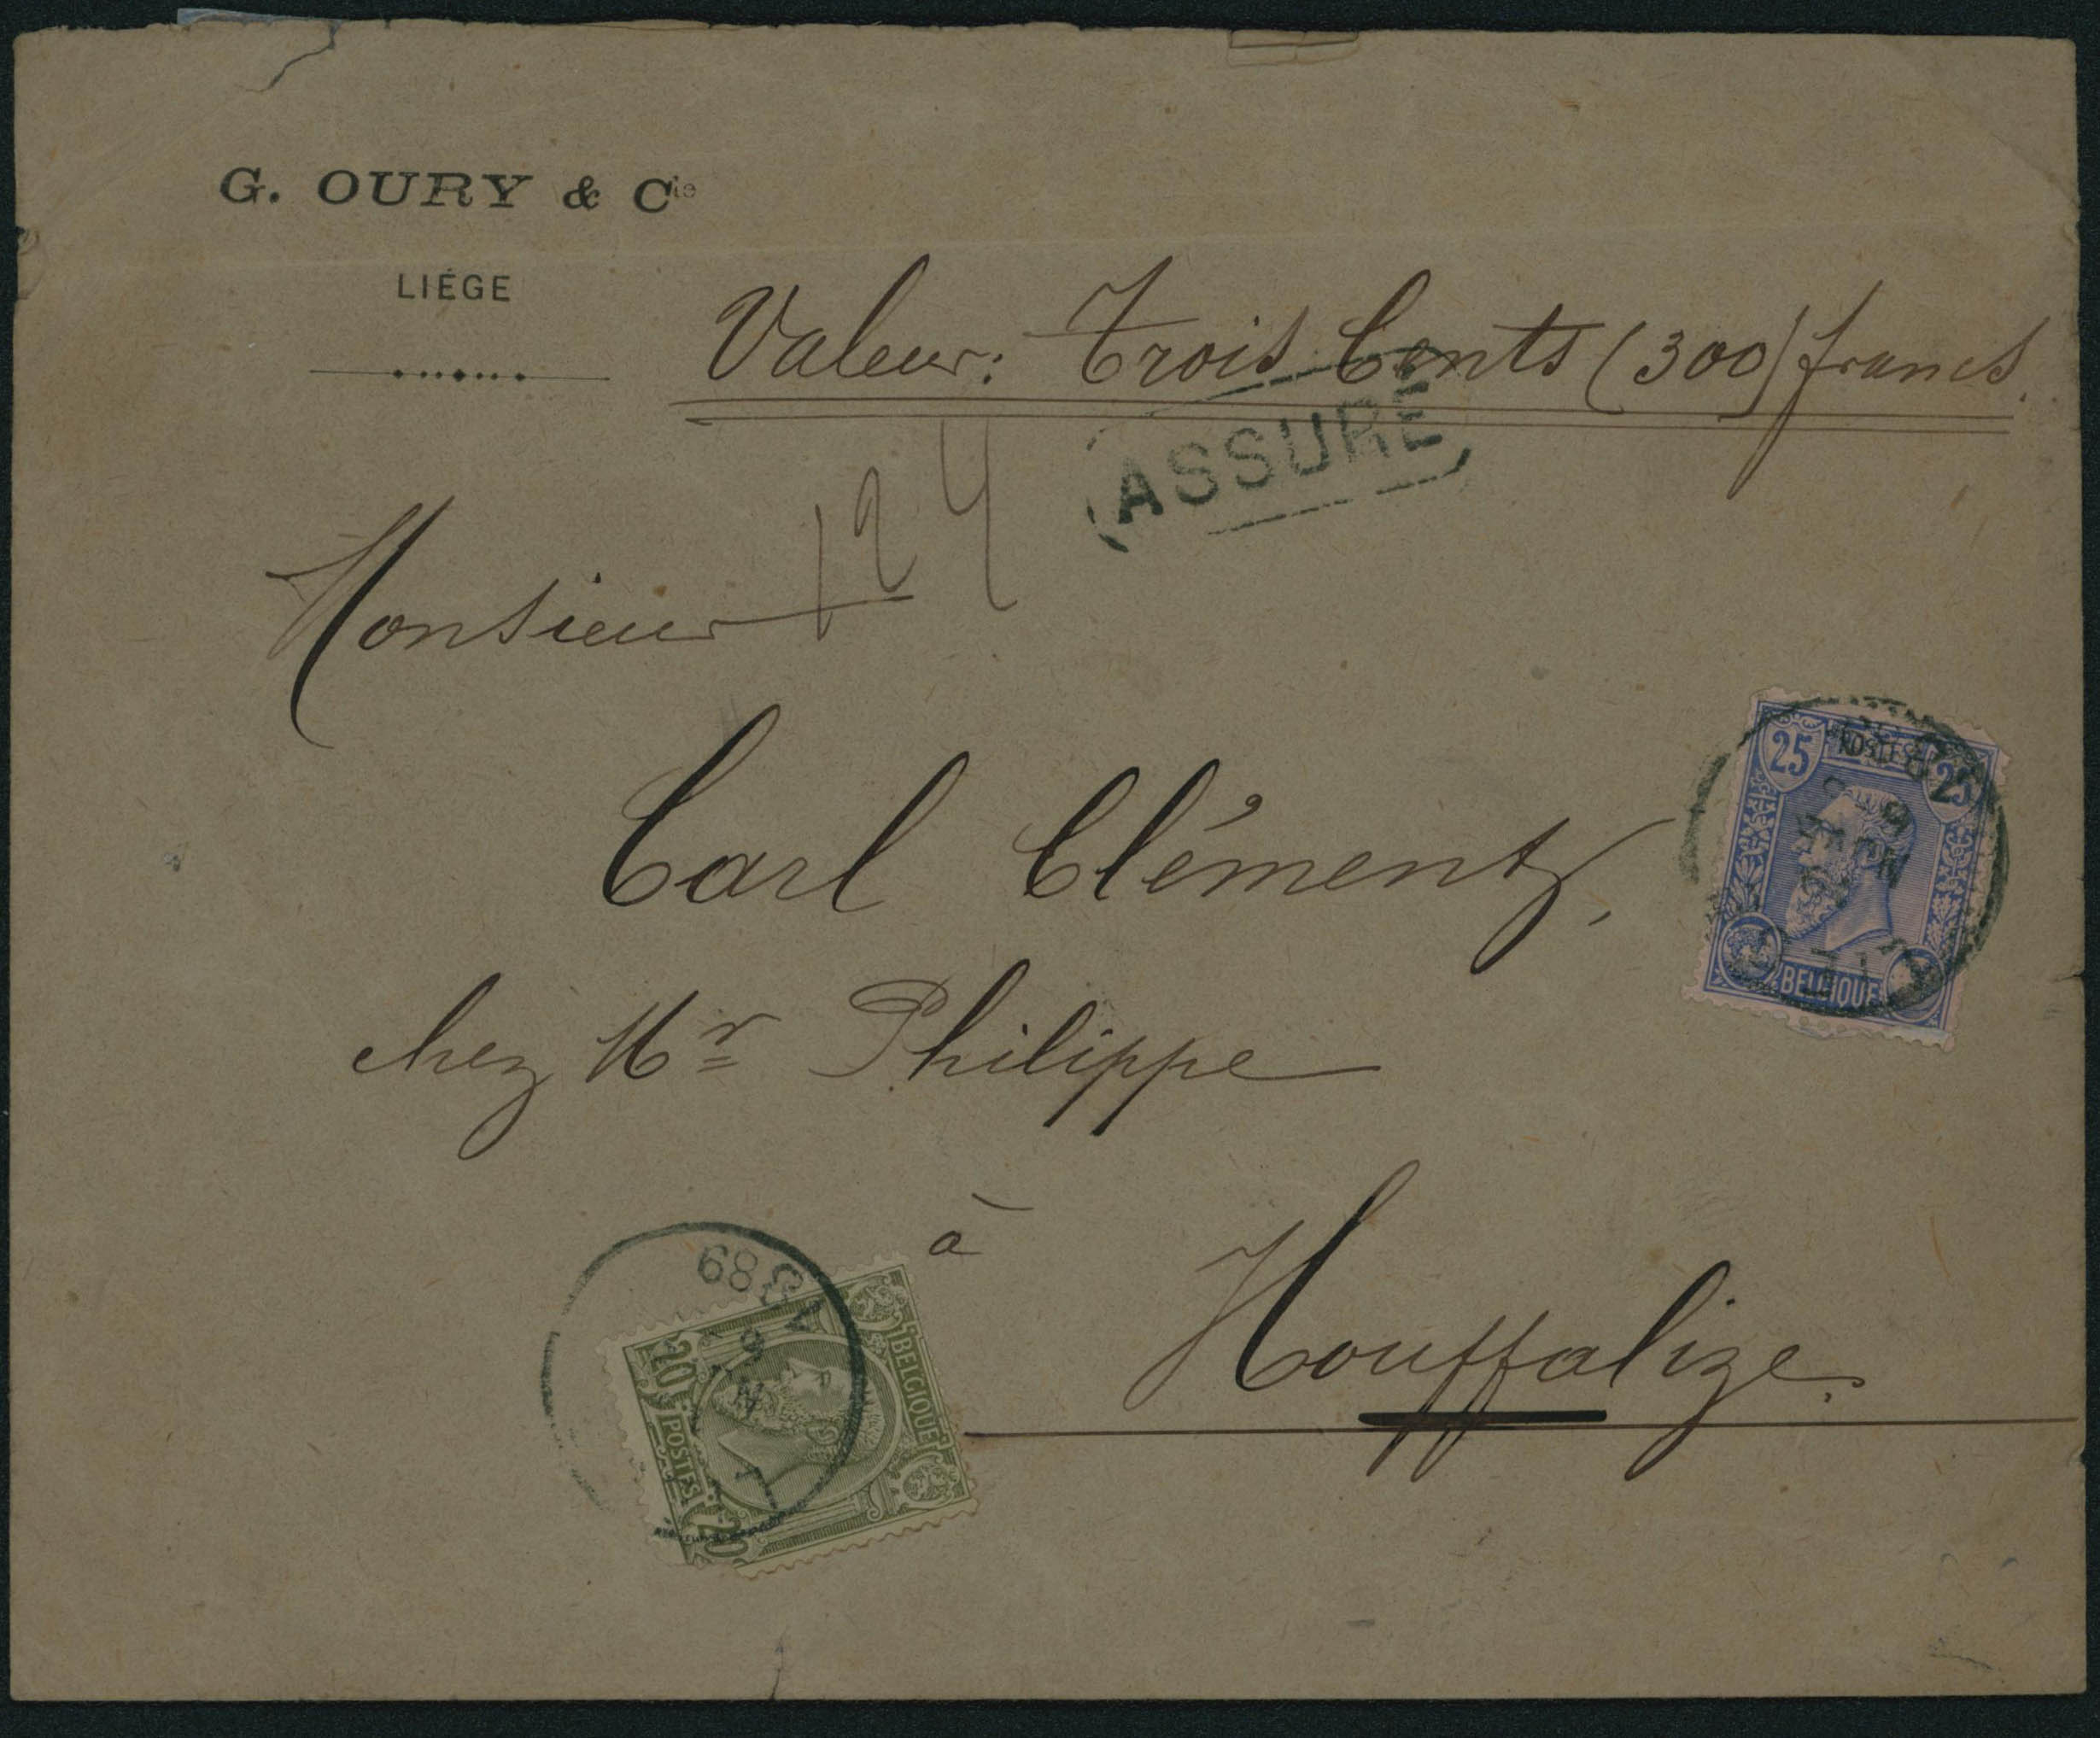 G. OURY & Cie
LIÉGE
Valeur: Trois Cents (300) francs.
ASSURÉ
124
Monsieur
Carl Clémentz,
chez Mr Philippe
à
Houffalize.
25 POSTES 25
BELGIQUE
89
BELGIQUE
20 POSTES 20